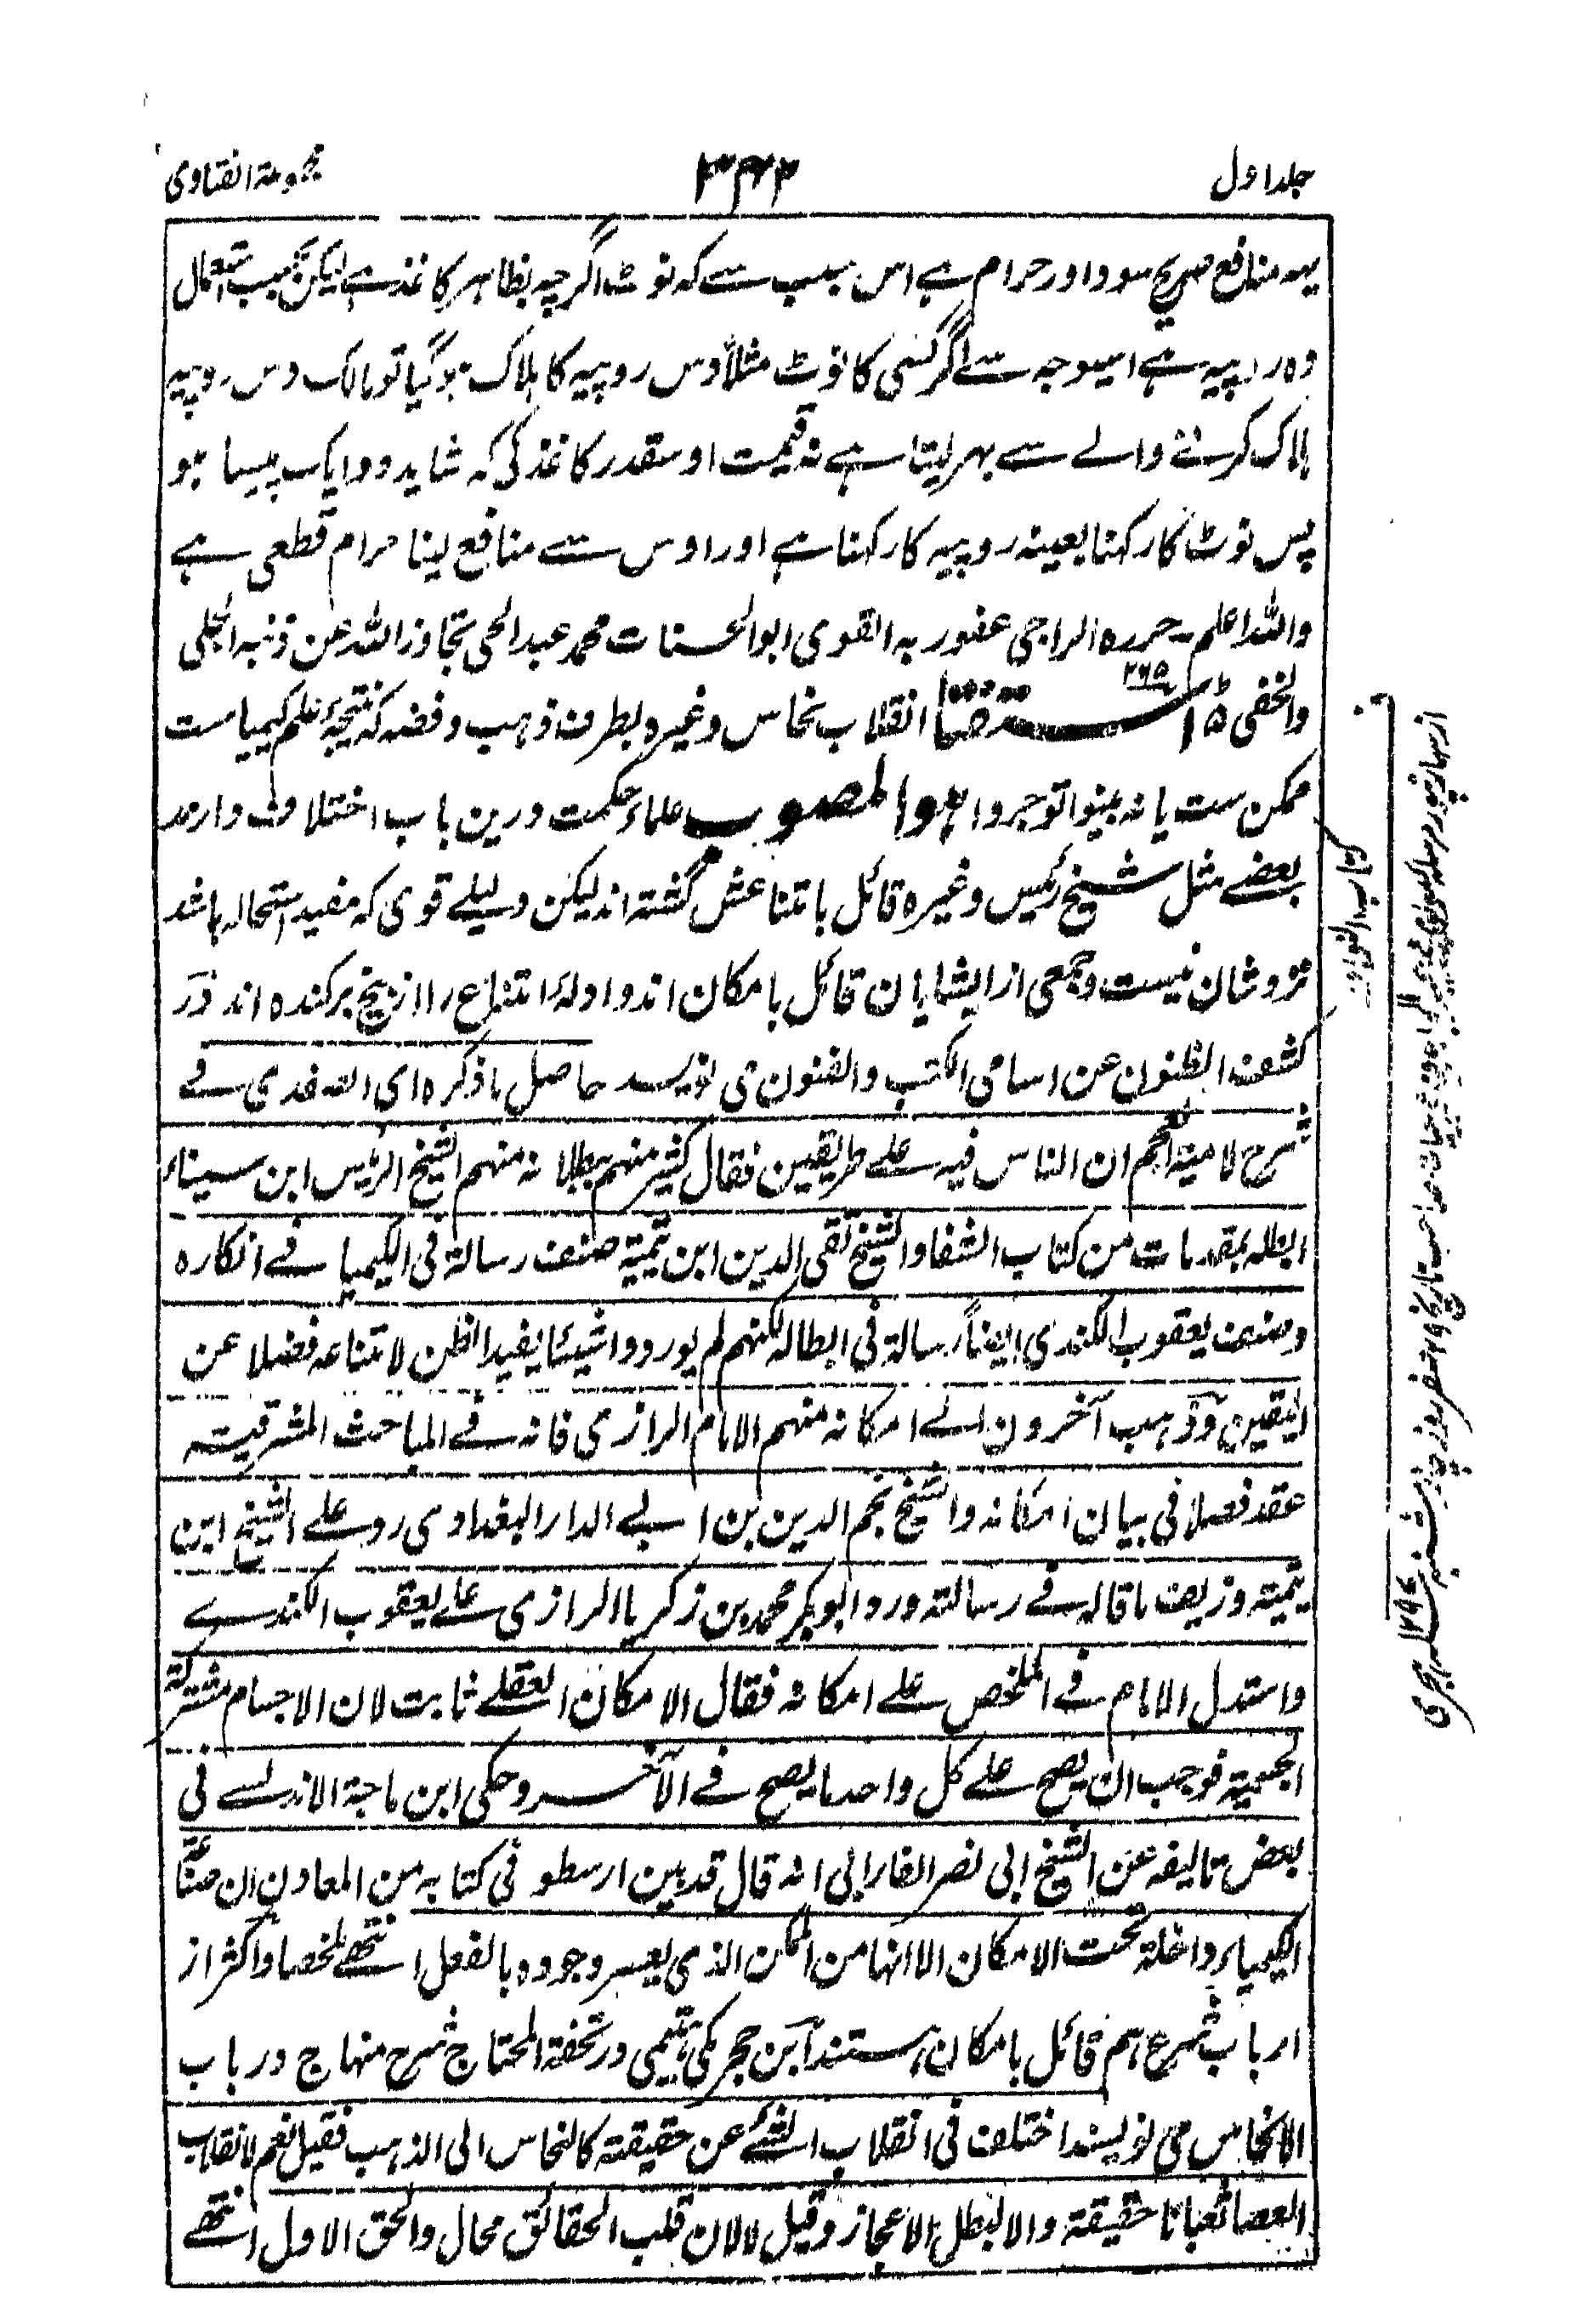 جلد اول
۳۶۲
مجموعۃ الفتاوی
یہہ منافع صریح سود اور حرام ہے اس سبب سے کہ نوٹ اگرچہ بظاہر کاغذ ہے لیکن بسبب استعمال
وہ روپیہ ہے اسیوجہ سے اگر کسی کا نوٹ مثلاً دس روپیہ کا ہلاک ہو گیا تو مالک دس روپیہ
ہلاک کرنے والے سے بہر لیتا ہے نہ قیمت اوسقدر کاغذ کی کہ شاید دو ایک پیسا ہو
پس نوٹ کا رکہنا بعینہ روپیہ کا رکہنا ہے اور اوس سے منافع لینا حرام قطعی ہے
واللہ اعلم۔ حررہ الراجی عفو ربہ القوی ابو الحسنات محمد عبد الحی تجاوز اللہ عن ذنبہ الجلی
والخفی ۱۵ استفتا ۲۶۵ انقلاب نحاس وغیرہ بطرف ذہب و فضہ کہ نتیجۂ علم کیمیاست
ممکن ست یا نہ بینوا توجروا ہوالمصوب علماء حکمت درین باب اختلاف دارند
بعضے مثل شیخ رئیس وغیرہ قائل بامتناعش گشتہ اند لیکن دلیلے قوی کہ مفید استحالہ باشد
نزدشان نیست و جمعی از ایشایان قائل بامکان اند و ادلۂ امتناع را از بیخ برکندہ اند در
کشف الظنون عن اسامی الکتب والفنون می نویسد حاصل ما ذکرہ ای الصفدی فے
شرح لامیۃ العجم ان الناس فیہ علے طریقین فقال کثیر منہم ببطلانہ منہم الشیخ الرئیس ابن سیناء
ابطلہ بمقدمات من کتاب الشفا والشیخ تقی الدین ابن تیمیۃ صنف رسالۃ فی الکیمیا فے انکارہ
وصنف یعقوب الکندی ایضاً رسالۃ فی ابطالہ لکنہم لم یوردوا شیئا یفید الظن لامتناعہ فضلا عن
الیقین وذہب آخرون الے امکانہ منہم الامام الرازی فانہ فے المباحث المشرقیۃ
عقد فصلا فی بیان امکانہ والشیخ نجم الدین بن ابے الدار البغدادی رد علے الشیخ ابن
تیمیۃ وزیف ما قالہ فے رسالتہ ورد ابوبکر محمد بن زکریا الرازی علے یعقوب الکندے
واستدل الامام فے الملخص علے امکانہ فقال الامکان العقلے ثابت لان الاجسام مشترکۃ
الجسمیۃ فوجب ان یصح علے کل واحد ما یصح فے الآخر وحکی ابن ماجۃ الاندلسے فی
بعض تالیفہ عن الشیخ ابی نصر الفارابی انہ قال قد بین ارسطو فی کتابہ من المعادن ان صناعۃ
الکیمیاء داخلۃ تحت الامکان الا انہا من الممکن الذی یعسر وجودہ بالفعل انتھے ملخصا و اکثر از
ارباب شرع ہم قائل بامکان ہستند ابن حجر مکی ہیتمی در تحفۃ المحتاج شرح منہاج در باب
الانجاس می نویسند اختلف فی انقلاب الشئے عن حقیقتہ کالنحاس الی الذہب فقیل نعم لانقلاب
العصا ثعبانا حقیقۃ والا لبطل الاعجاز وقیل لا لان قلب الحقائق محال والحق الاول انتھے
کتاب النوادر